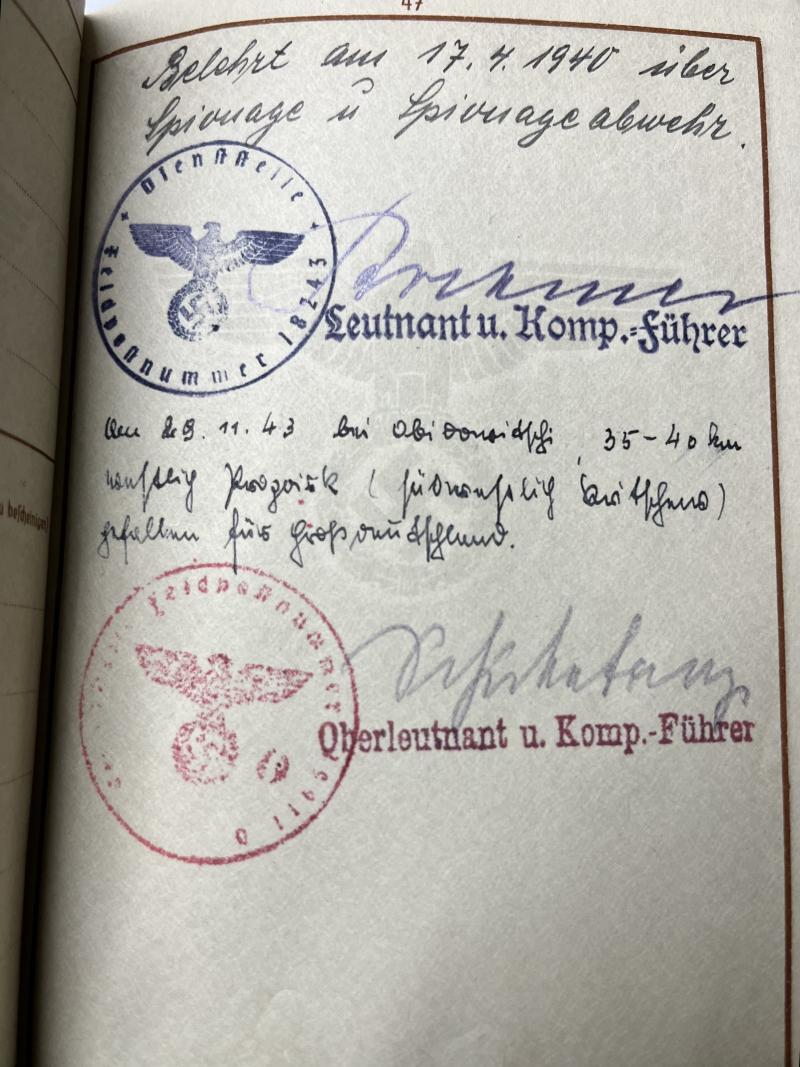 47
Belehrt am 17. 4. 1940 über
Spionage u Spionageabwehr.
Dienststelle
Feldpostnummer 18243
Leutnant u. Komp.-Führer
29. 11. 43 bei 35-40 km
westlich Propoisk (südwestlich Kritschew)
gefallen für Großdeutschland.
Feldpostnummer
Oberleutnant u. Komp.-Führer
u bescheinigen)